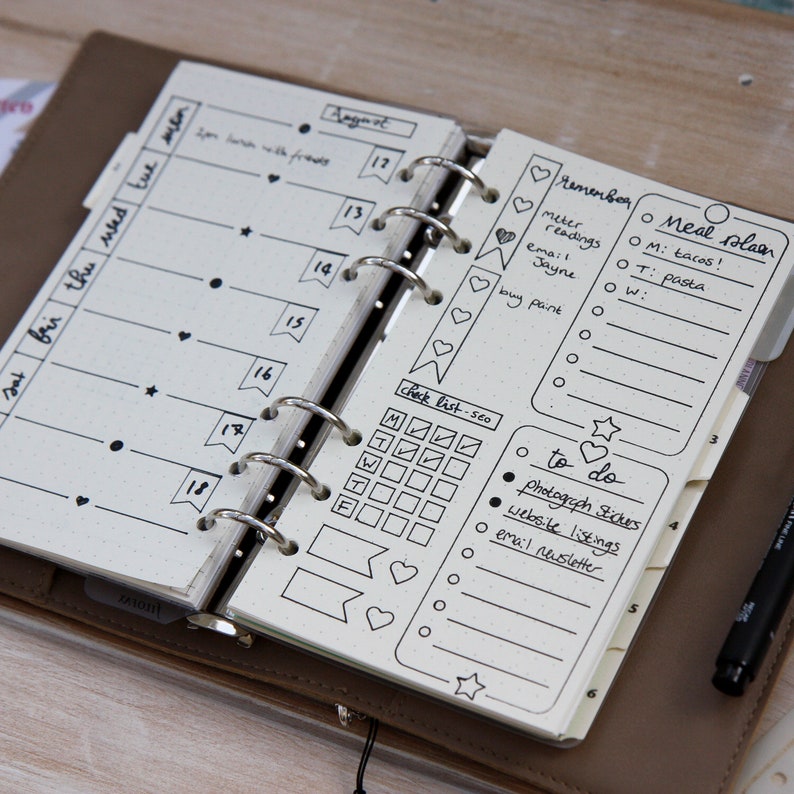 August
mon
2pm lunch with friends
12
tue
13
wed
14
thu
15
fri
16
sat
17
sun
18
remember
meter
readings
email
Jayne
buy paint
check list - SEO
M
T
W
T
F
Meal plan
M: tacos!
T: pasta
W:
to do
photograph stickers
website listings
email newsletter
3
4
5
6
filofax
FINE LINE